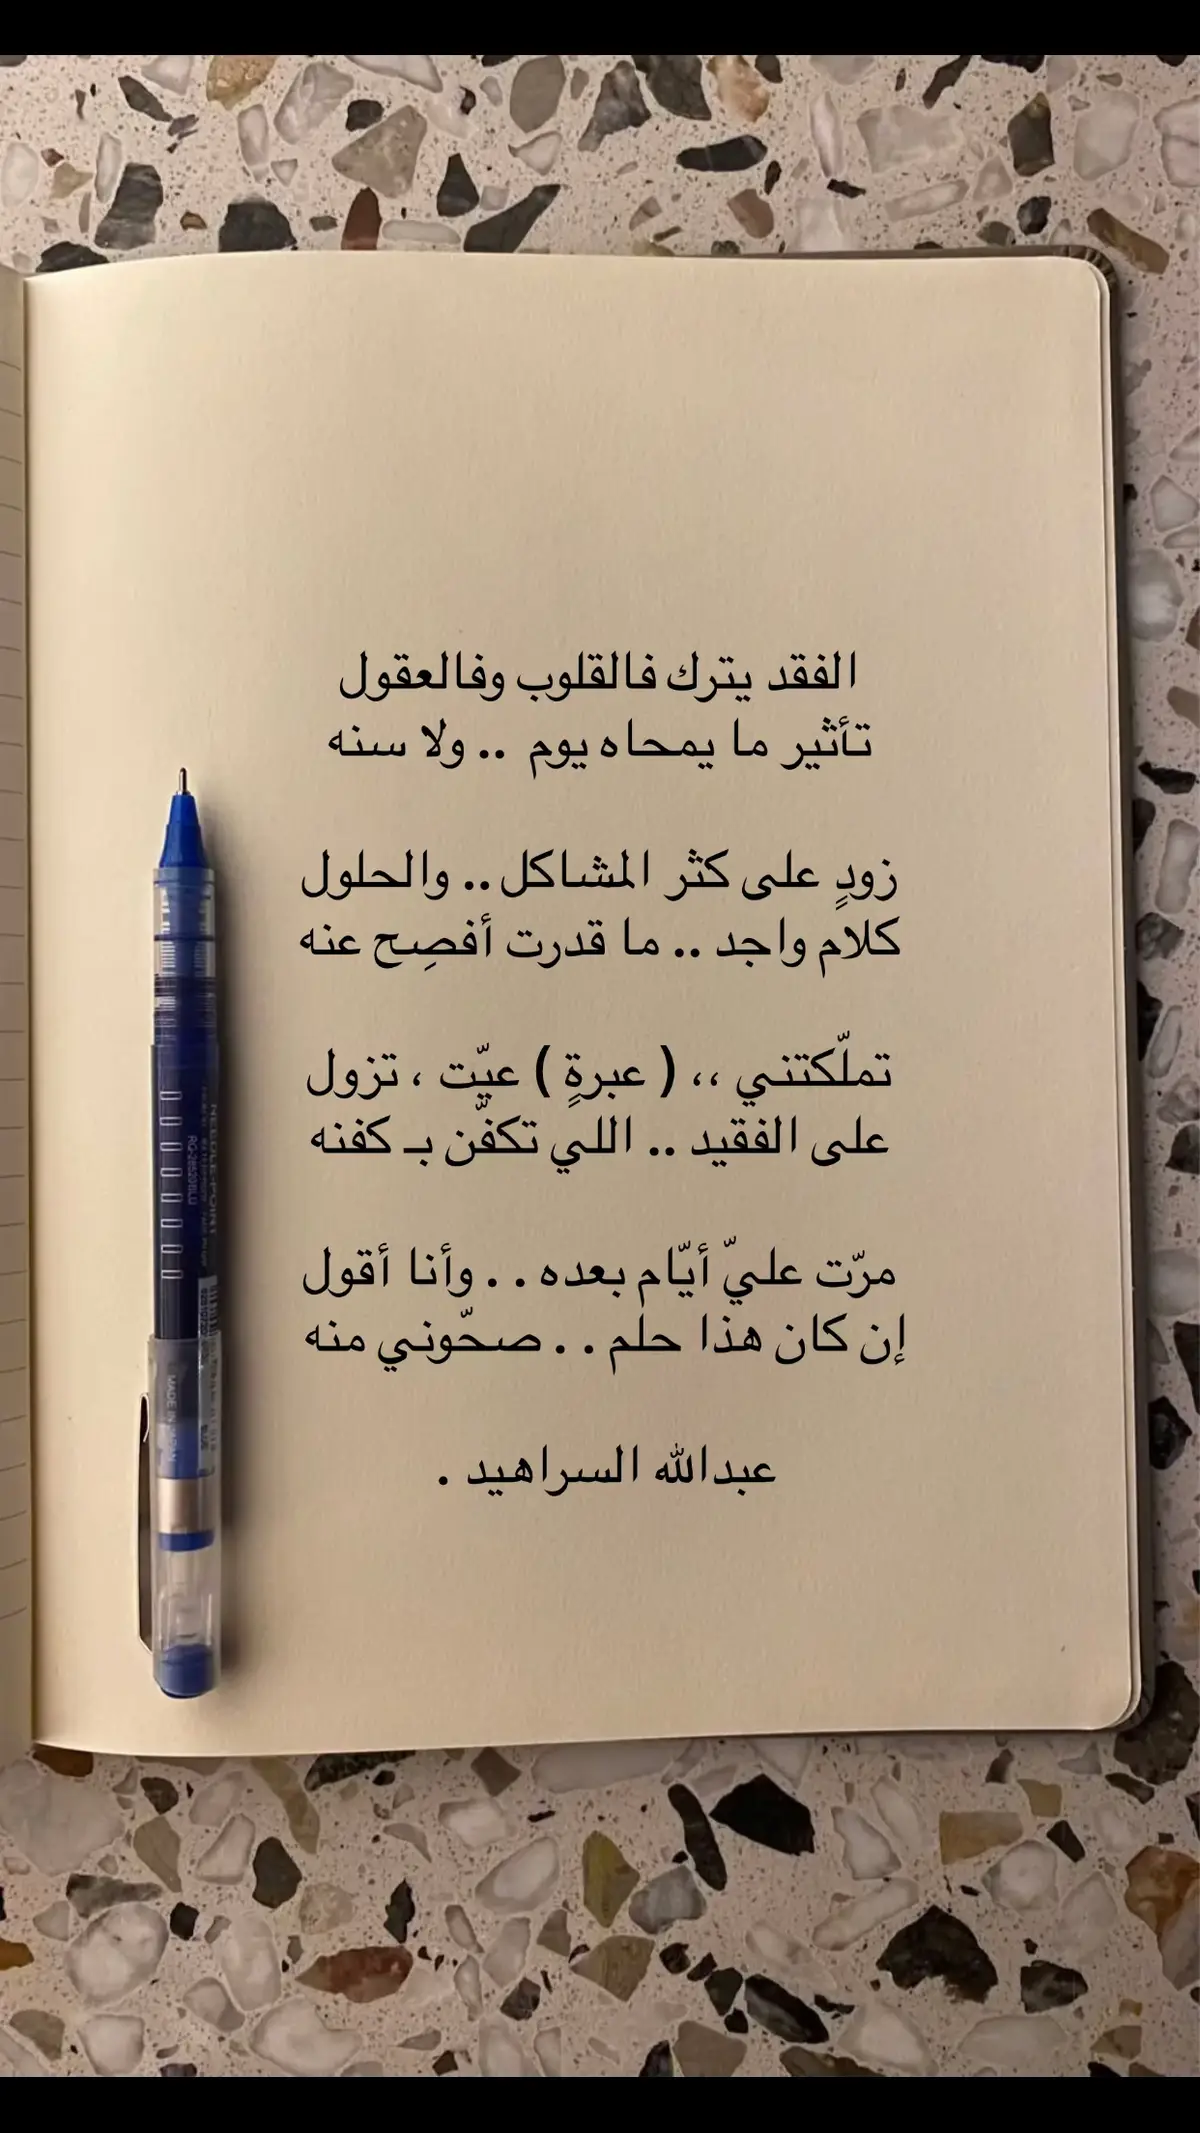 الفقد يترك فالقلوب وفالعقول
تأثير ما يمحاه يوم .. ولا سنه
زودٍ على كثر المشاكل .. والحلول
كلام واجد .. ما قدرت أفصِح عنه
تملّكتني ،، ( عبرةٍ ) عيّت ، تزول
على الفقيد .. اللي تكفّن بـ كفنه
مرّت عليّ أيّام بعده . . وأنا أقول
إن كان هذا حلم . . صحّوني منه
عبدالله السراهيد .
NEEDLE-POINT
MADE IN JAPAN